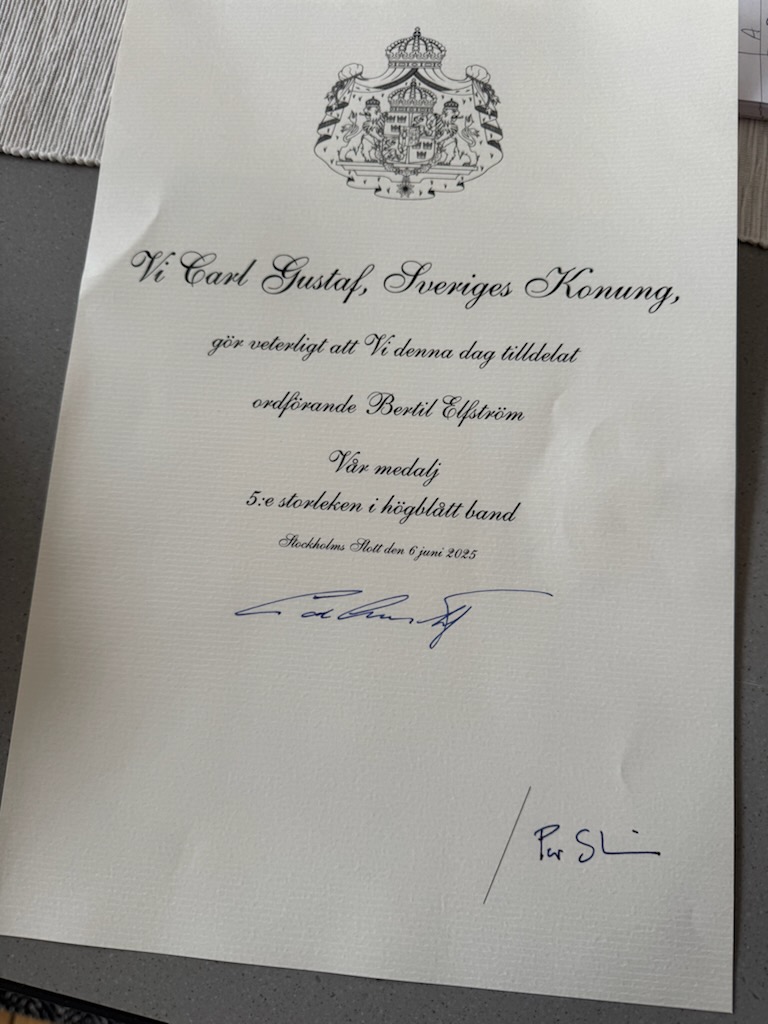 Vi Carl Gustaf, Sveriges Konung,
gör veterligt att Vi denna dag tilldelat
ordförande Bertil Elfström
Vår medalj
5:e storleken i högblått band
Stockholms Slott den 6 juni 2025
Carl Gustaf
/ Per